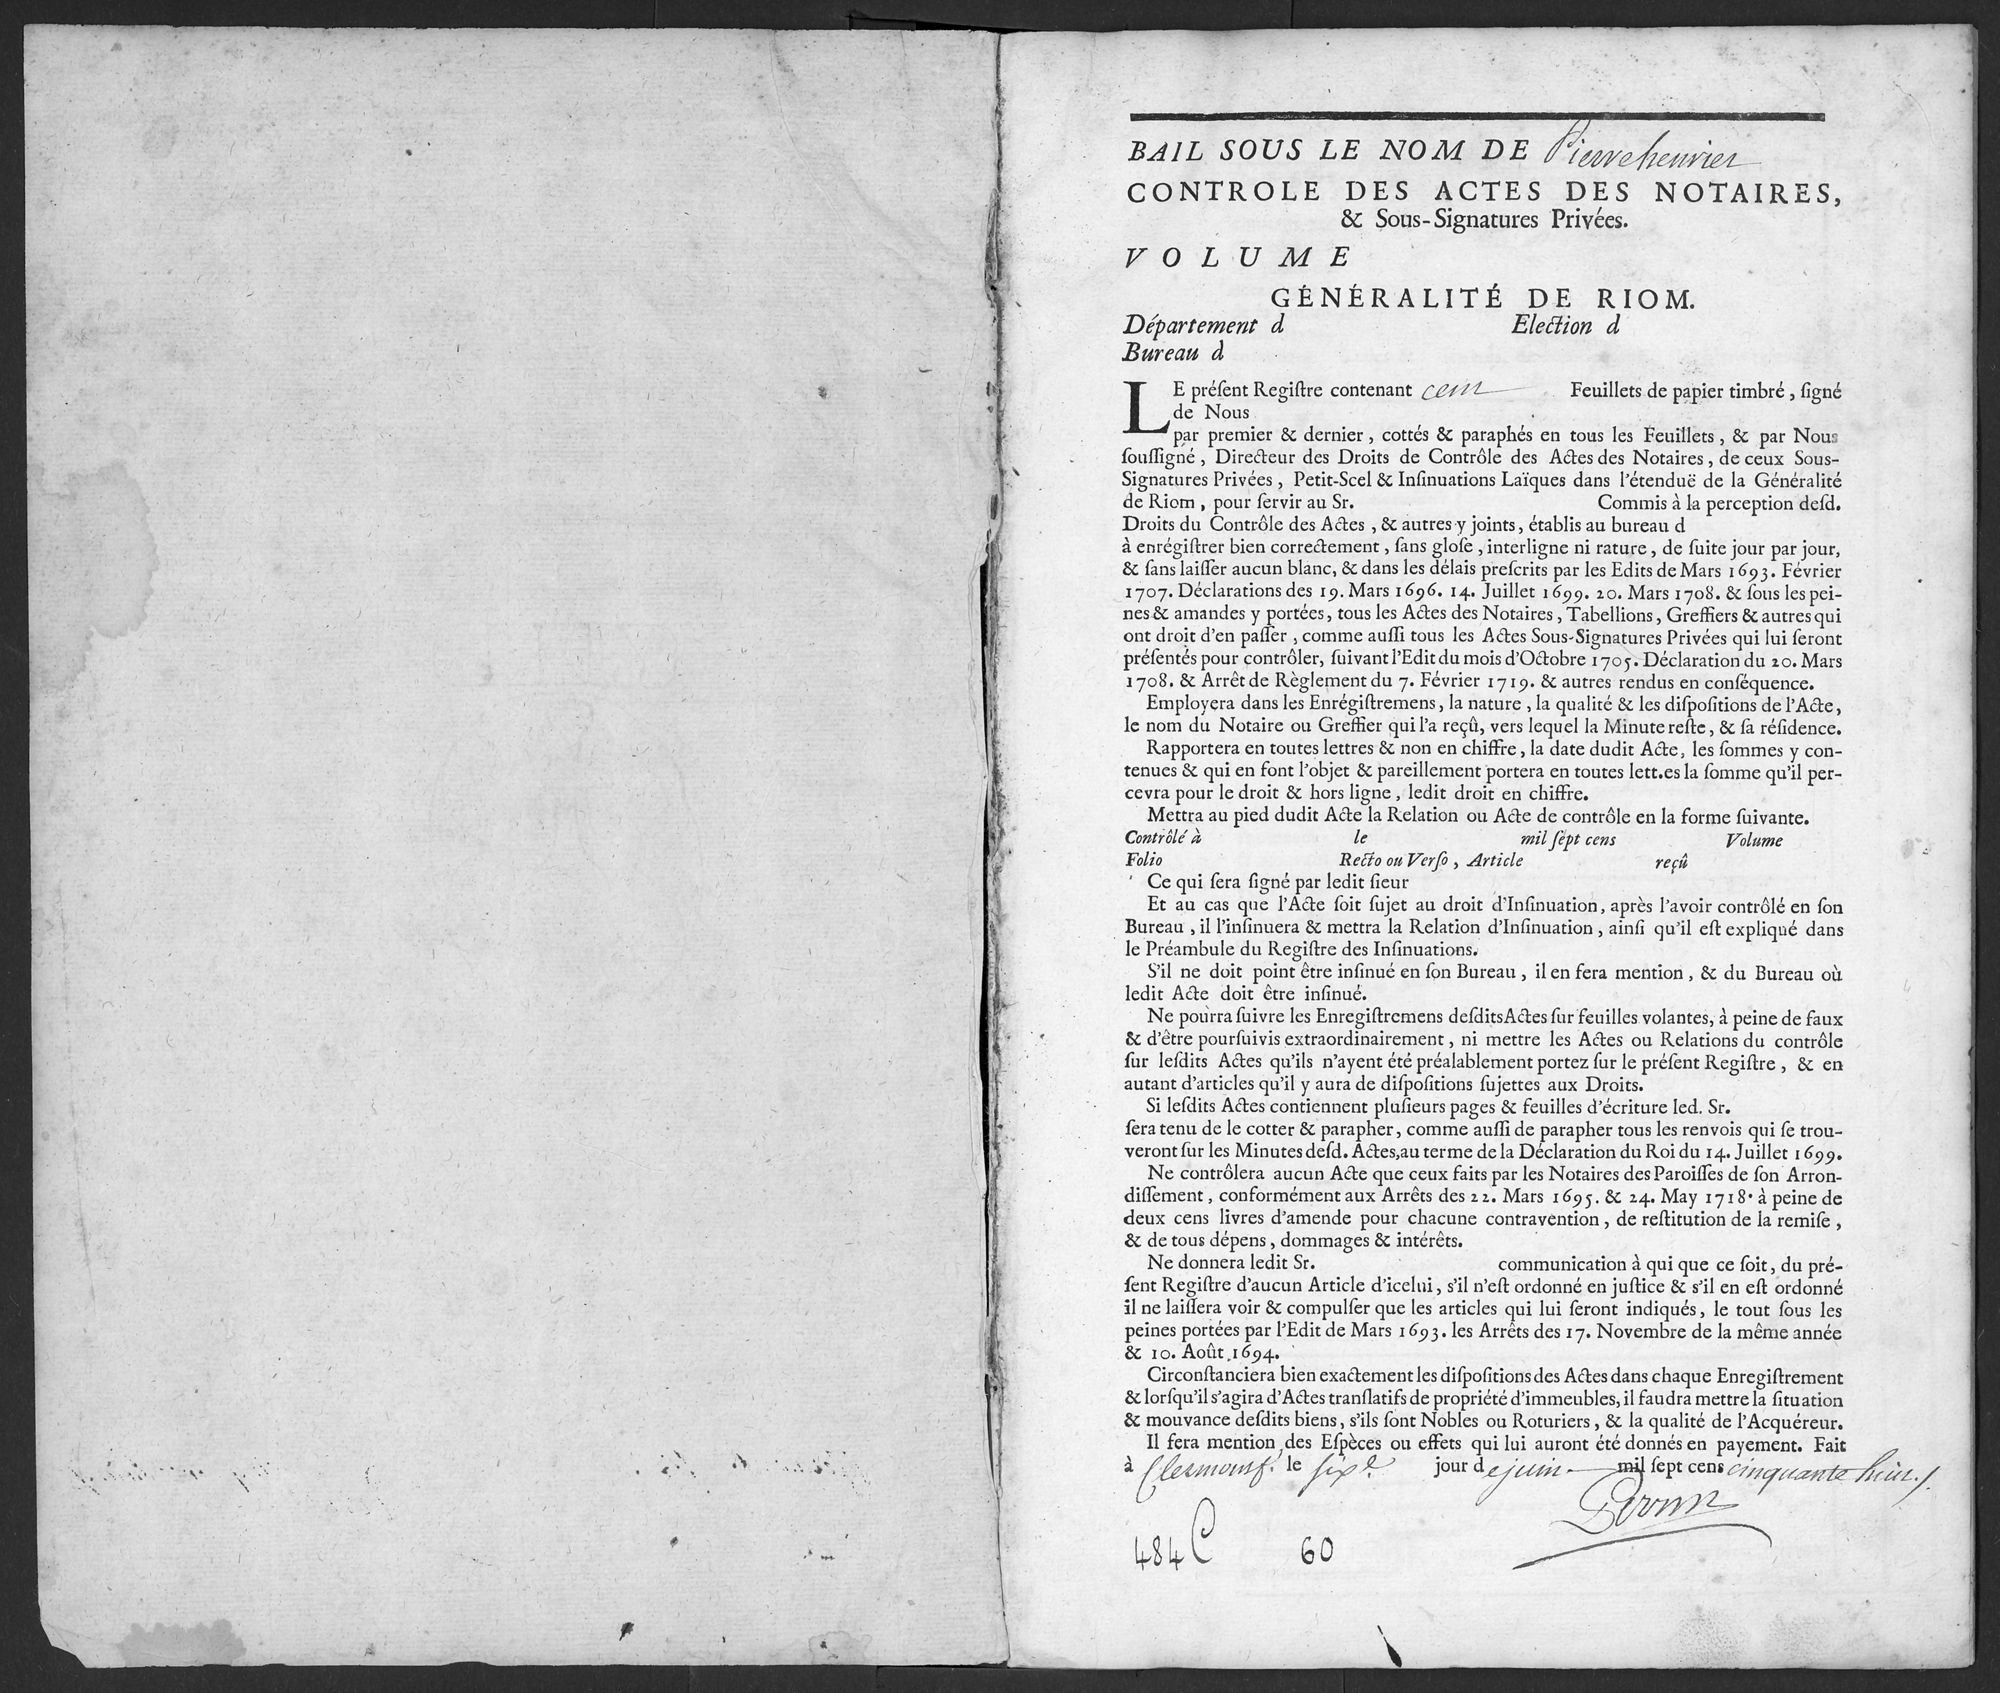 BAIL SOUS LE NOM DE Pierre henrier
CONTROLE DES ACTES DES NOTAIRES,
& Sous-Signatures Privées.
VOLUME
GÉNÉRALITÉ DE RIOM.
Département d Election d
Bureau d
LE préſent Regiſtre contenant cent Feuillets de papier timbré, ſigné
de Nous
par premier & dernier, cottés & paraphés en tous les Feuillets, & par Nous
ſouſſigné, Directeur des Droits de Contrôle des Actes des Notaires, de ceux Sous-
Signatures Privées, Petit-Scel & Inſinuations Laïques dans l'étenduë de la Généralité
de Riom, pour ſervir au Sr. Commis à la perception deſd.
Droits du Contrôle des Actes, & autres y joints, établis au bureau d
à enrégiſtrer bien correctement, ſans gloſe, interligne ni rature, de ſuite jour par jour,
& ſans laiſſer aucun blanc, & dans les délais preſcrits par les Edits de Mars 1693. Février
1707. Déclarations des 19. Mars 1696. 14. Juillet 1699. 20. Mars 1708. & ſous les pei-
nes & amandes y portées, tous les Actes des Notaires, Tabellions, Greffiers & autres qui
ont droit d'en paſſer, comme auſſi tous les Actes Sous-Signatures Privées qui lui ſeront
préſentés pour contrôler, ſuivant l'Edit du mois d'Octobre 1705. Déclaration du 20. Mars
1708. & Arrêt de Règlement du 7. Février 1719. & autres rendus en conſéquence.
Employera dans les Enrégiſtremens, la nature, la qualité & les diſpoſitions de l'Acte,
le nom du Notaire ou Greffier qui l'a reçû, vers lequel la Minute reſte, & ſa réſidence.
Rapportera en toutes lettres & non en chiffre, la date dudit Acte, les ſommes y con-
tenues & qui en font l'objet & pareillement portera en toutes lett.es la ſomme qu'il per-
cevra pour le droit & hors ligne, ledit droit en chiffre.
Mettra au pied dudit Acte la Relation ou Acte de contrôle en la forme ſuivante.
Contrôlé à le mil ſept cens Volume
Folio Recto ou Verſo, Article reçû
Ce qui ſera ſigné par ledit ſieur
Et au cas que l'Acte ſoit ſujet au droit d'Inſinuation, après l'avoir contrôlé en ſon
Bureau, il l'inſinuera & mettra la Relation d'Inſinuation, ainſi qu'il eſt expliqué dans
le Préambule du Regiſtre des Inſinuations.
S'il ne doit point être inſinué en ſon Bureau, il en fera mention, & du Bureau où
ledit Acte doit être inſinué.
Ne pourra ſuivre les Enregiſtremens deſdits Actes ſur feuilles volantes, à peine de faux
& d'être pourſuivis extraordinairement, ni mettre les Actes ou Relations du contrôle
ſur leſdits Actes qu'ils n'ayent été préalablement portez ſur le préſent Regiſtre, & en
autant d'articles qu'il y aura de diſpoſitions ſujettes aux Droits.
Si leſdits Actes contiennent pluſieurs pages & feuilles d'écriture led. Sr.
ſera tenu de le cotter & parapher, comme auſſi de parapher tous les renvois qui ſe trou-
veront ſur les Minutes deſd. Actes, au terme de la Déclaration du Roi du 14. Juillet 1699.
Ne contrôlera aucun Acte que ceux faits par les Notaires des Paroiſſes de ſon Arron-
diſſement, conformément aux Arrêts des 22. Mars 1695. & 24. May 1718. à peine de
deux cens livres d'amende pour chacune contravention, de reſtitution de la remiſe,
& de tous dépens, dommages & intérêts.
Ne donnera ledit Sr. communication à qui que ce ſoit, du pré-
ſent Regiſtre d'aucun Article d'icelui, s'il n'eſt ordonné en juſtice & s'il en eſt ordonné
il ne laiſſera voir & compulſer que les articles qui lui ſeront indiqués, le tout ſous les
peines portées par l'Edit de Mars 1693. les Arrêts des 17. Novembre de la même année
& 10. Août 1694.
Circonſtanciera bien exactement les diſpoſitions des Actes dans chaque Enregiſtrement
& lorſqu'il s'agira d'Actes tranſlatifs de propriété d'immeubles, il faudra mettre la ſituation
& mouvance deſdits biens, s'ils ſont Nobles ou Roturiers, & la qualité de l'Acquéreur.
Il fera mention des Eſpèces ou effets qui lui auront été donnés en payement. Fait
à Clermont le six.e jour de juin mil ſept cens cinquante huit./.
484 C 60